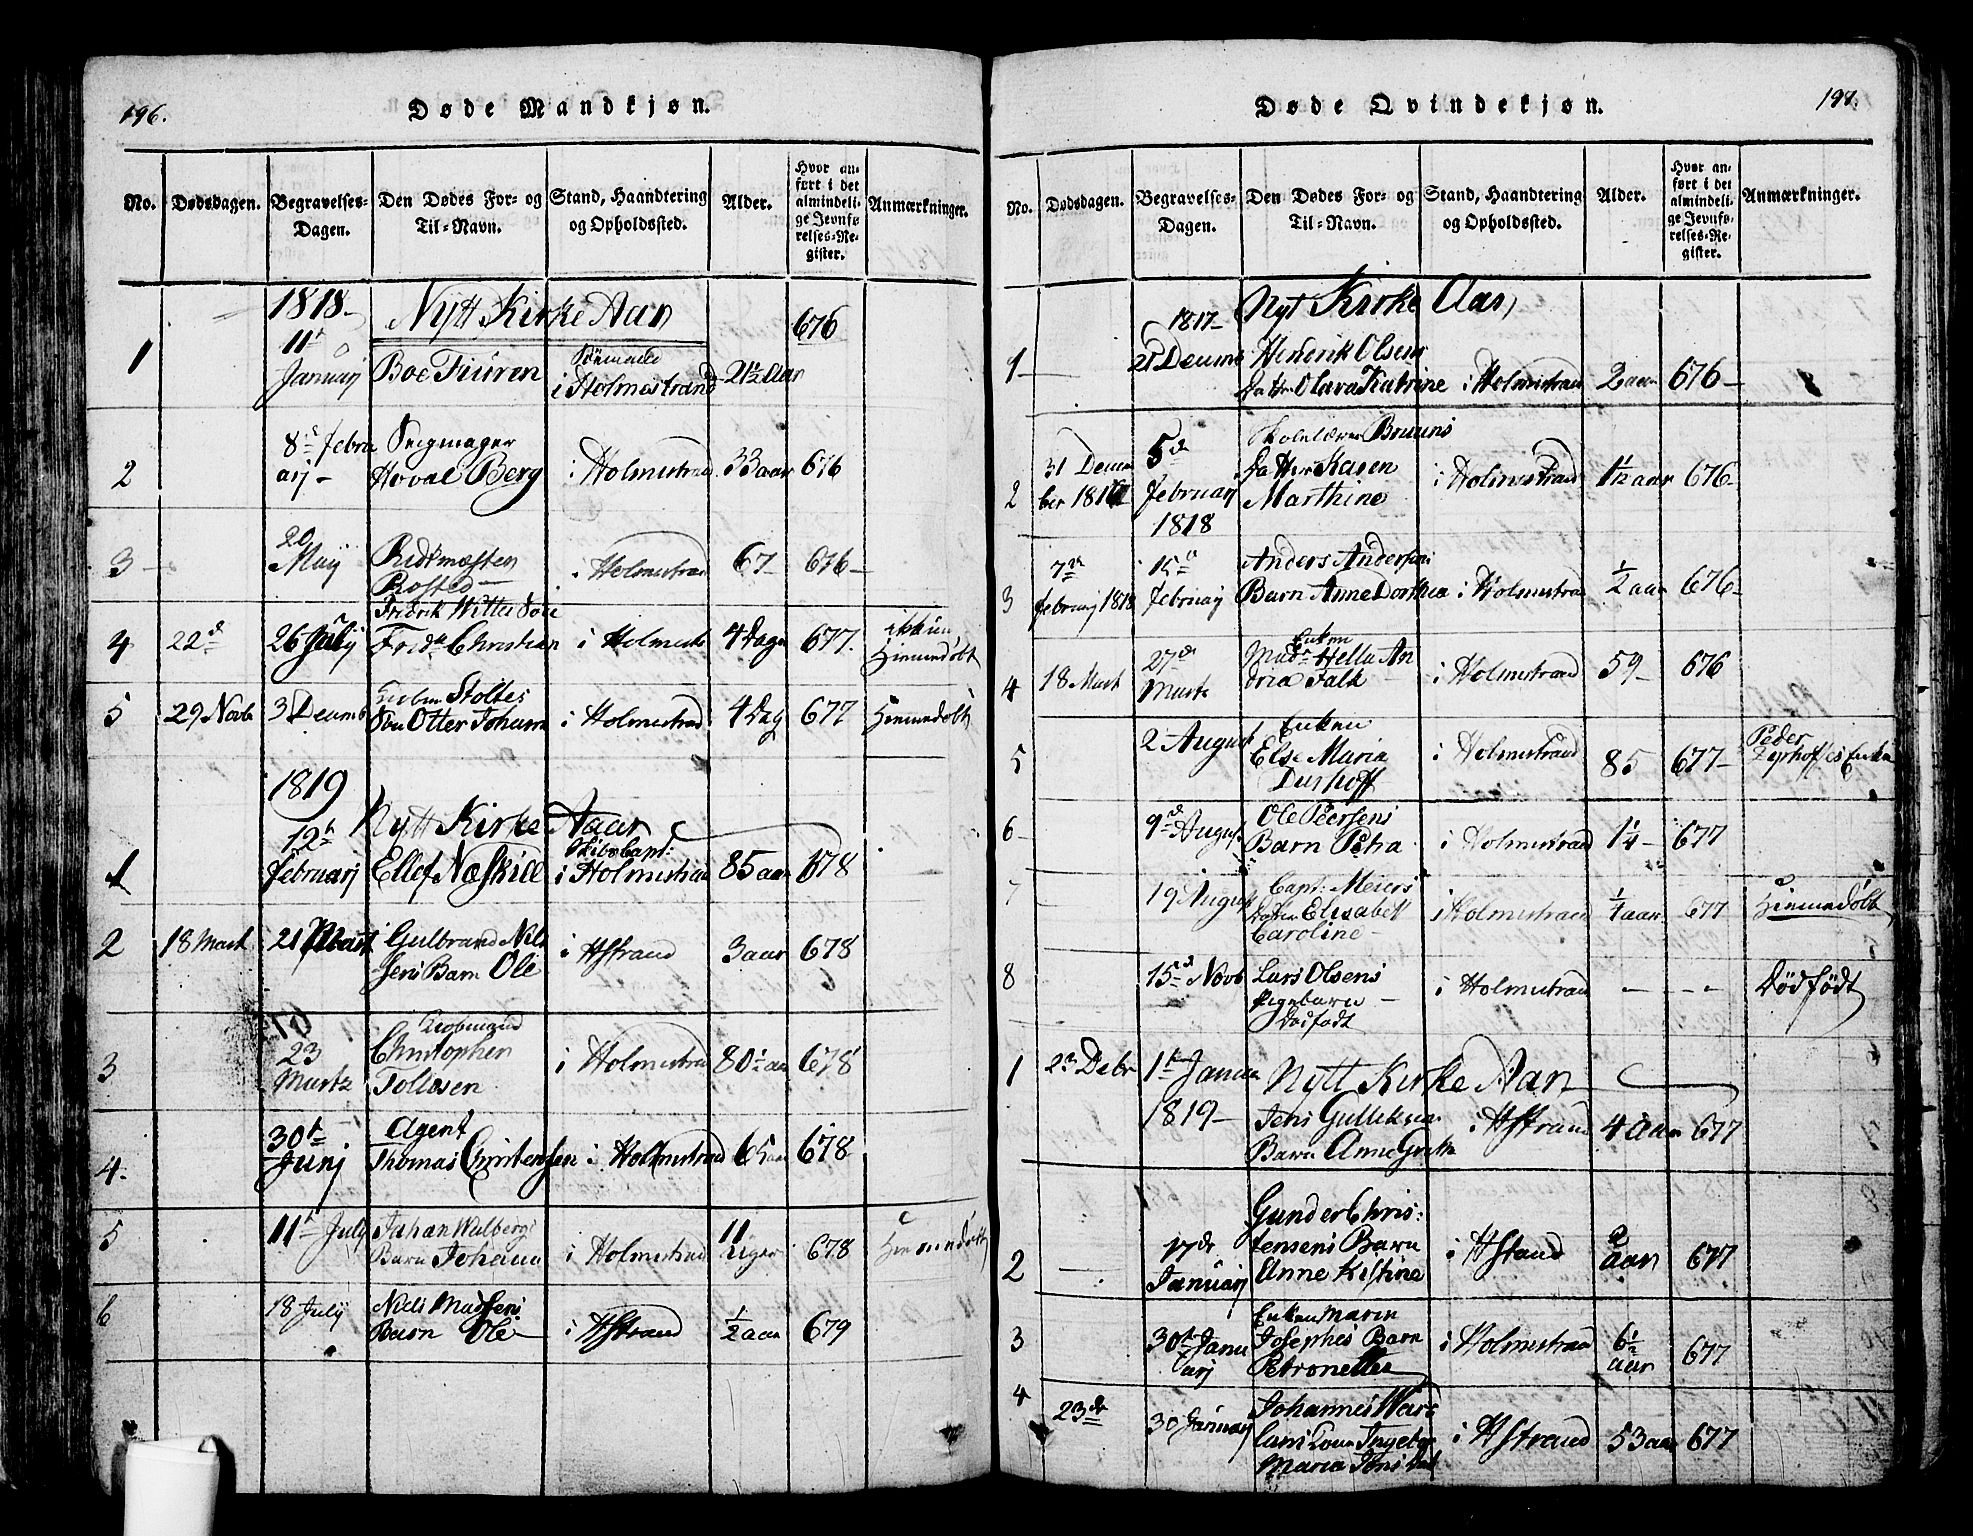 196.
Døde Mandkjøn.
No.
Dødsdagen.
Begravelses-
Dagen.
Den Dødes For- og
Til-Navn.
Stand, Haandtering
og Opholdssted.
Alder.
Hvor an-
ført i det
almindeli-
ge Jevnfø-
relses-Re-
gister.
Anmærkninger.
1818 Nytt Kirke Aar 676
1 11te
Januarj Boe i Holmestrand 21½ Aar
2 8de febru
arj Hoval Berg i Holmestrand 33 aar 676
3 20
Maij i Holmestrand 67 676
4 22d 26 Julij Fridr Christian i Holmest 4 Dage 677.
Hiemmedøbt
5 29 Novb 3 Decemb Stoltes
Søn Otter Johann i Holmestrad 4 Dag 677 Hiemmedøbt
1819
Nytt Kirke Aaar
1 12te
februarj Ellef Næskild Skibs Capt:
i Holmestrand 85 aar 678
2 18 Mart 21 Mart Gulbrand Nils
sens Barn Ole i HStrand 3 aar 678
3 23
Martz Kiøbmand
Christopher
Tollesen i Holmestrad 80½ aar 678
4. 30t
Junj Agent
Thomas Christensen i Holmestrand 65 aar 678
5 11t July Johan Walbergs
Barn Johanna i Holmestrad 11
uger 678 Hiemmedøbt
6 18 Julij Niels Madsens
Barn Ole i HStrand ½ aar 679
197.
Døde Qvindekjøn.
No.
Dødsdagen.
Begravelses-
Dagen.
Den Dødes For- og
Til-Navn.
Stand, Haandtering
og Opholdssted.
Alder.
Hvor an-
ført i det
almindeli-
ge Jevnfø-
relses-Re-
gister.
Anmærkninger.
1817 Nyt Kirke Aar
1 21 Decemb Henderik Olsens
Datter Olava Katrine i Holmestrand 2 aar 676
2 31 Decem
ber 5d
februarj
1818 Skolelærer Bruuns
Datter Karen
Marthine i Holmestrand 1½ aar 676
3 7de
februarj 1818 15de
februarj Anders Andersens
Barn Anne Dorthea i Holmestrad ½ aar 676
4 18 Mart 27de
Martz Enken
Mad Hella An
dria Falk i Holmestrand 59 676
5 2 August Enken
Else Maria
Durhoff i Holmestrand 85 677 Peder
Enke
6 9de August Ole Peersens
Barn Petra i Holmestrand 1¼ 677
7 19 August Capt: Meiers
Datter Elisabett
Caroline i Holmestrand ¼ aar 677 Hiemmedøbt
8 15de Novb Lars Olsens
Pigebarn
Dødfødt i Holmestrand Dødfødt
1 23 Debr 1t Januar
1819 Nytt Kirke Aar
Jens Gulliksen
Barn Anne Grette i HStrand 4 aar 677
2 17de
Januarj Gunder Chris:
tensens Barn
Anne Kistine i HStand 2
aar 677
3 30te Janu
arj Enken Maria
Josephes Barn
Petronelle i Holmestrand 6½
aar 677
4 23de 30 Januarj Johannes
Kone Ingebor
Maria i HStrand 53 aar 677